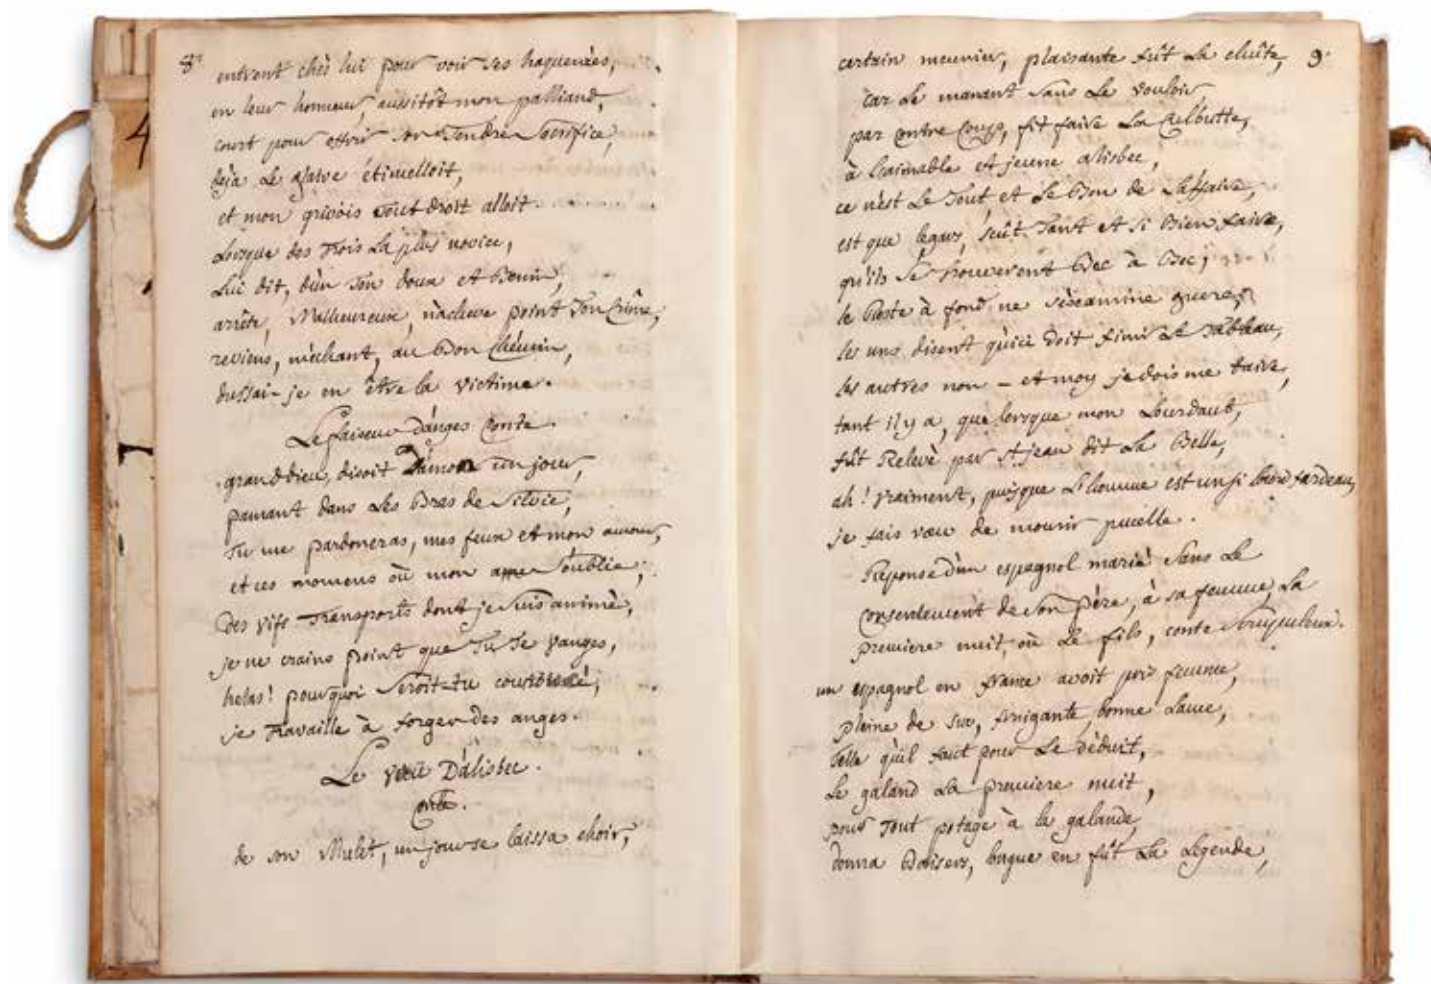 8.
entrent chès lui pour voir ses haquenèes,
en leur honneur, aussitôt mon palliard,
court pour offrir son tendre sacrifice,
dèja Le glaive étincelloit,
et mon grivois tout droit alloit.
Lorsque des trois La plus novice,
Lui dit, d'un ton doux et Benin,
arrête, Malheureux, n'acheve point ton Crime,
reviens, mèchant, au Bon Chémin,
dussai-je en être la victime.
Le faiseur d'anges Conte.
grand dieu, disoit Damon un jour,
pamant dans Les Bras de Silvie,
Tu me pardoneras, mes feux et mon amour,
et ces momens où mon ame s'oublie;
Des vifs Transports dont je suis animè,
je ne crains point que Tu Te vanges,
helas! pourquoi seroit-tu courroucé,
je Travaille à forger des anges.
Le vœu D'alisbec.
Conte.
de son Mulet, un jour se laissa choir,
4
9.
certain meunier, plaisante fût La chûte,
car Le manant sans Le vouloir
par Contre Coup, fit faire La Culbutte,
à L'aimable et jeune alisbec,
ce n'est Le Tout et Le Bon de L'affaire,
est que legars, sçût Tant et si Bien faire,
qu'ils se trouverent Bec à Bec;
le Reste à fond ne s'éxamine guere,
les uns disent qu'ici doit finir Le Tableau,
les autres non - et moy je dois me taire,
tant il y a, que lorsque mon Lourdaut,
fût Relevè par St jean dit La Belle,
ah! vraiment, puisque L'homme est un si lourd fardeau,
je fais vœu de mourir pucelle.
Reponse d'un espagnol mariè sans Le
Consentement de son Père, à sa femme, La
premiere nuit, où Le fils, conte
un espagnol en france avoit pris femme,
pleine de suc, fringante, bonne Lame,
Telle qu'il faut pour Le dèduit,
Le galand La premiere nuit,
pour Tout potage à la galande,
donna Baisers, longue en fût La Legende,